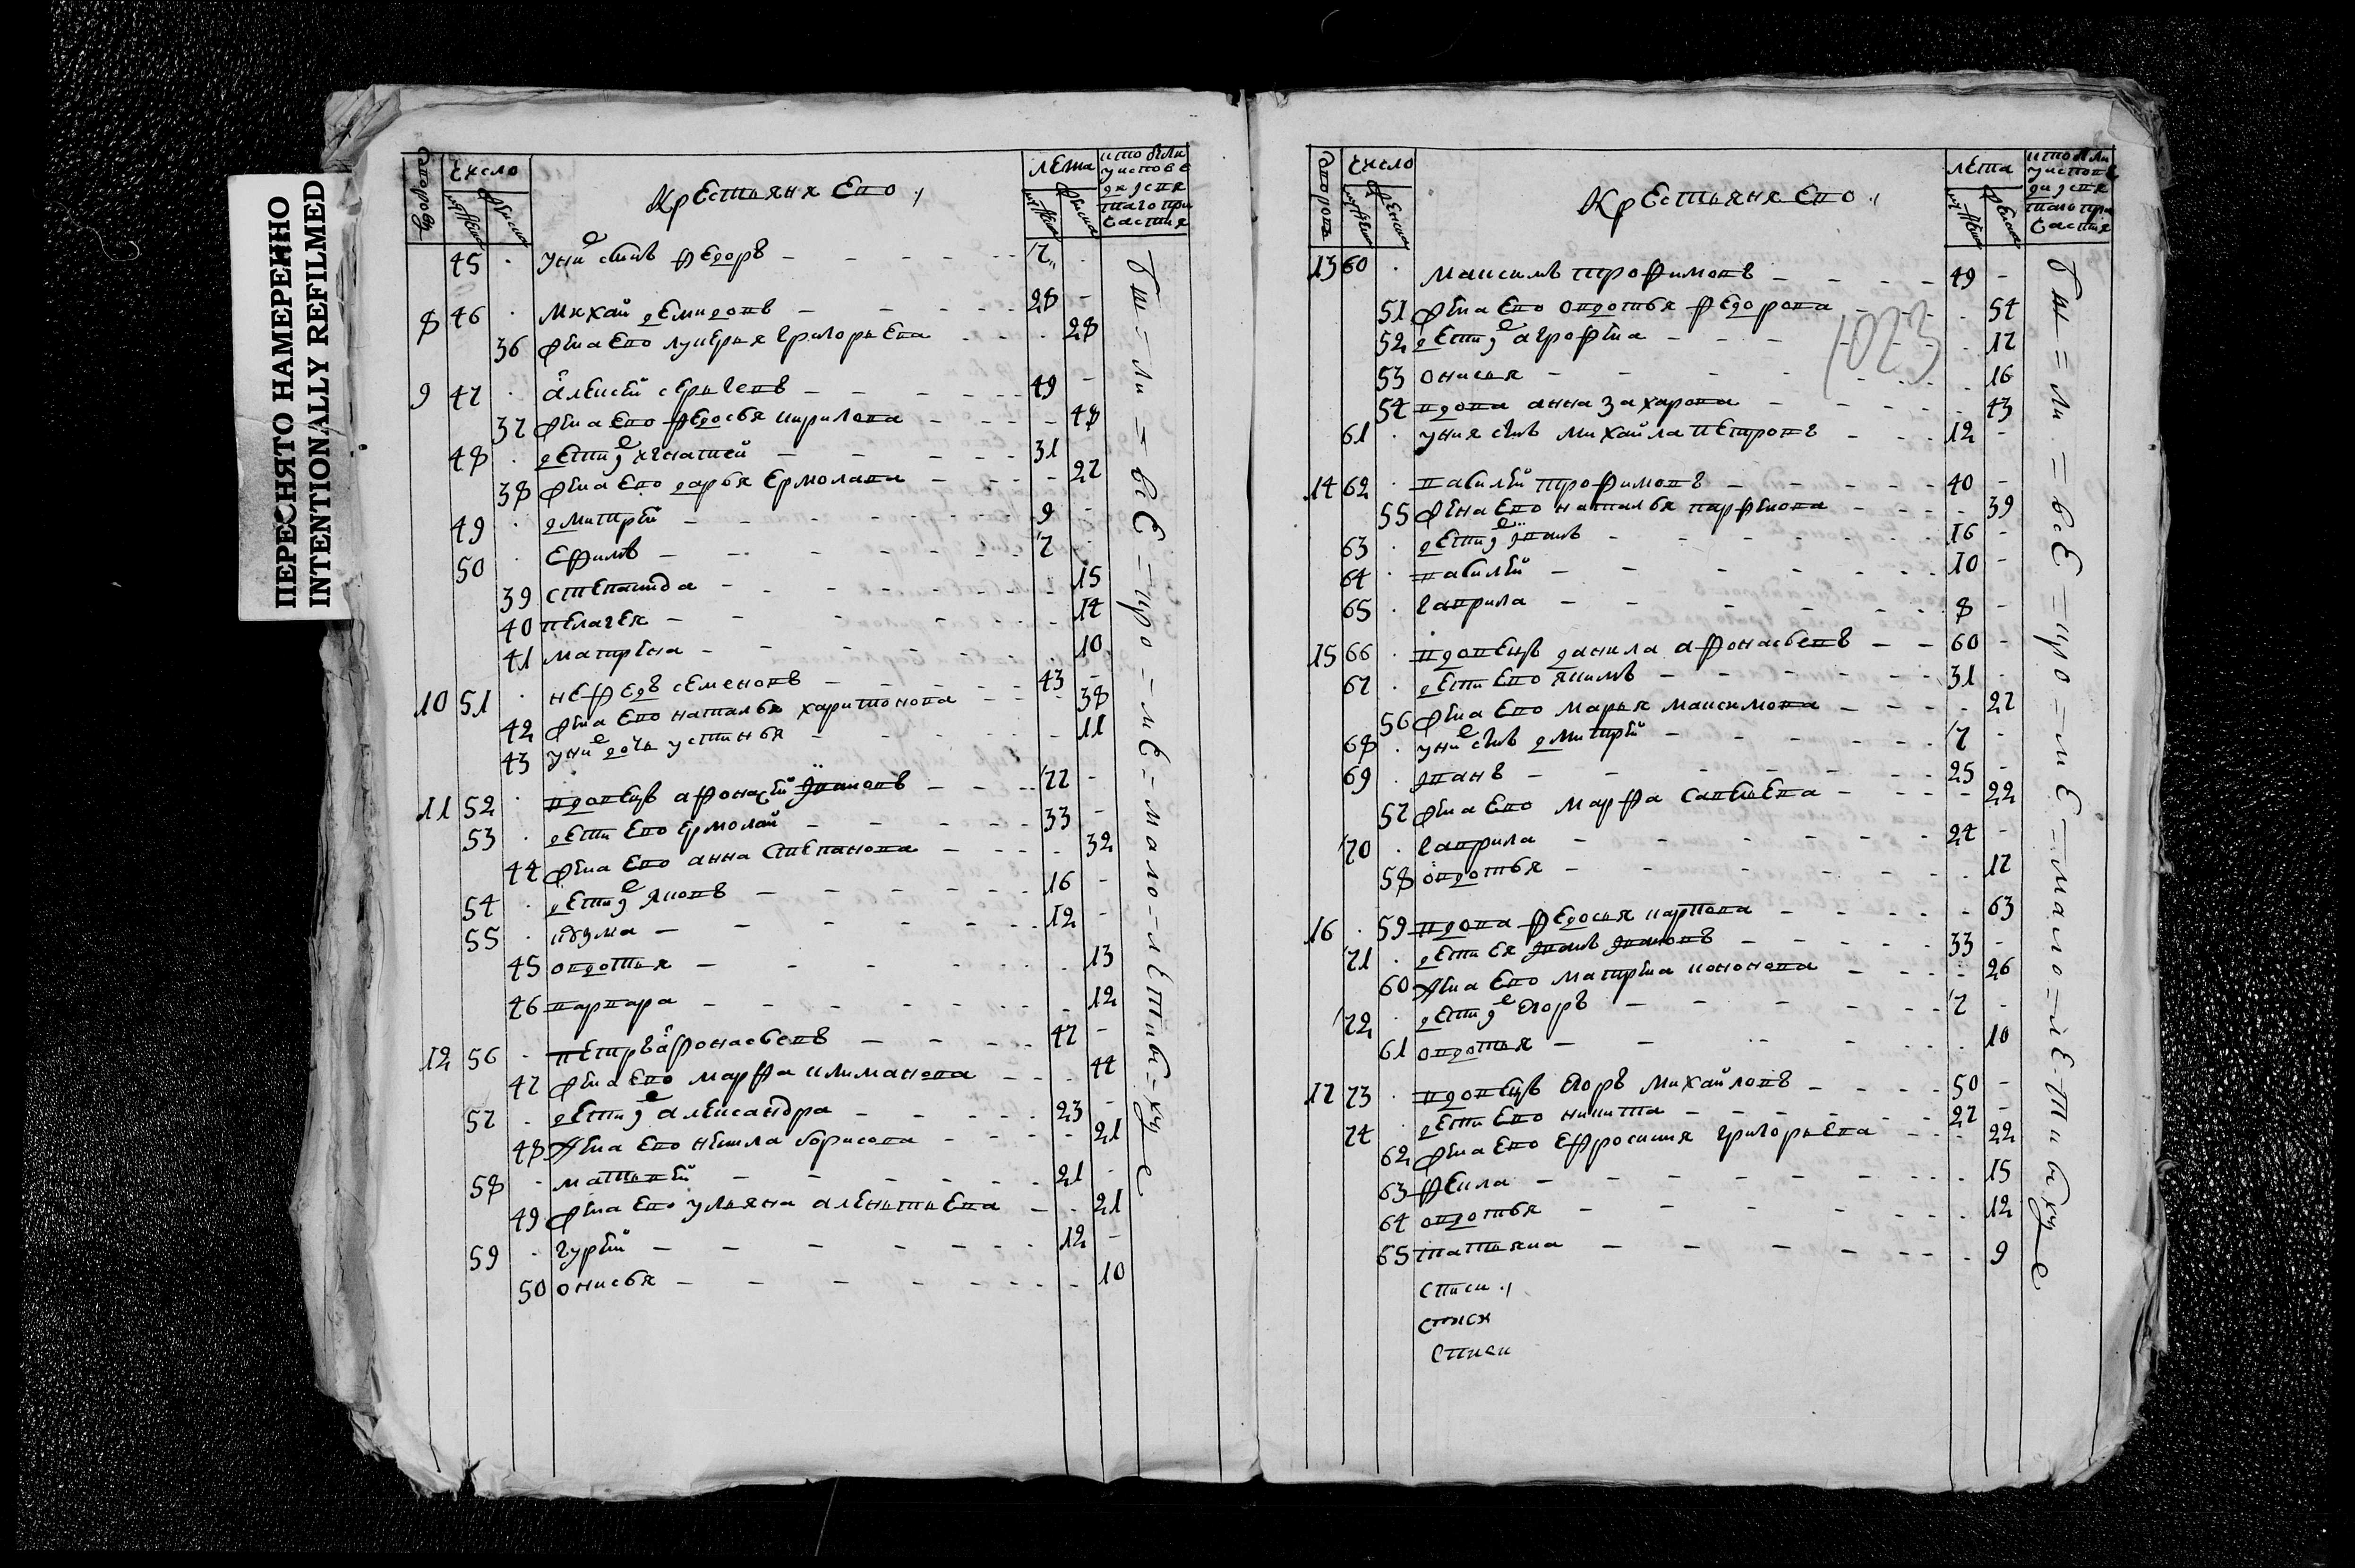 ПЕРЕСНЯТО НАМЕРЕННО
INTENTIONALLY REFILMED
число
лета
Крестьяня ево
45 у них сынъ Федоръ 7
8 46 Михай Демидовъ 28
36 жена ево Лукерья Григорьева 28
9 47 Алексей Сергеевъ 49
37 жена ево Федосья Кирилова 48
48 дети их Игнатей 31
38 жена ево Дарья Ермолава 27
49 Дмитрей 9
50 Ефимъ 7
39 Степанида 15
40 Пелагея 14
41 Матрена 10
10 51 Нефедъ Семеновъ 43
42 жена ево Наталья Харитонова 38
43 у них дочь Устинья 11
11 52 вдовецъ Афонасей Ивановъ 77
53 дети ево Ермолай 33
44 жена ево Анна Степанова 32
54 дети их Яковъ 16
55 Кузма 12
45 Овдотья 13
46 Варвара 12
12 56 Петръ Афонасьевъ 47
47 жена ево Марфа Климанова 44
57 дети их Александра 23
48 жена ево Борисова 21
58 Матвей 21
49 жена ево Ульяна 21
59 Гурей 12
50 Онисья 10
бы=ли=все=кро=ме=мало=летных
число
лета
Крестьяня ево
13 60 Максимъ Трофимовъ 49
1023
51 жена ево Овдотья Федорова 54
52 дети их Агрофена 17
53 Онисья 16
54 вдова Анна Захарова 43
61 у ния сынъ Михайла Петровъ 12
14 62 Василей Трофимовъ 40
55 жена ево Наталья Парфенова 39
63 дети их Иванъ 16
64 Василей 10
65 Гаврила 8
15 66 вдовецъ Данила Афонасьевъ 60
67 дети ево Якимъ 31
56 жена ево Марья Максимова 27
68 у них сынъ Дмитрей 7
69 Иванъ 25
57 жена ево Марфа Савельева 22
70 Гаврила 24
58 Овдотья 17
16 59 вдова Федосья Карпова 63
71 дети ея Иванъ Ивановъ 33
60 жена ево Матрена Кононова 26
72 дети их Егоръ 7
61 Овдотья 10
17 73 вдовецъ Егоръ Михайловъ 50
74 дети ево Никита 27
62 жена ево Ефросиния Григорьева 22
63 Фекла 15
64 Овдотья 12
65 Татьяна 9
бы=ли=все=кро=ме=мало=летных